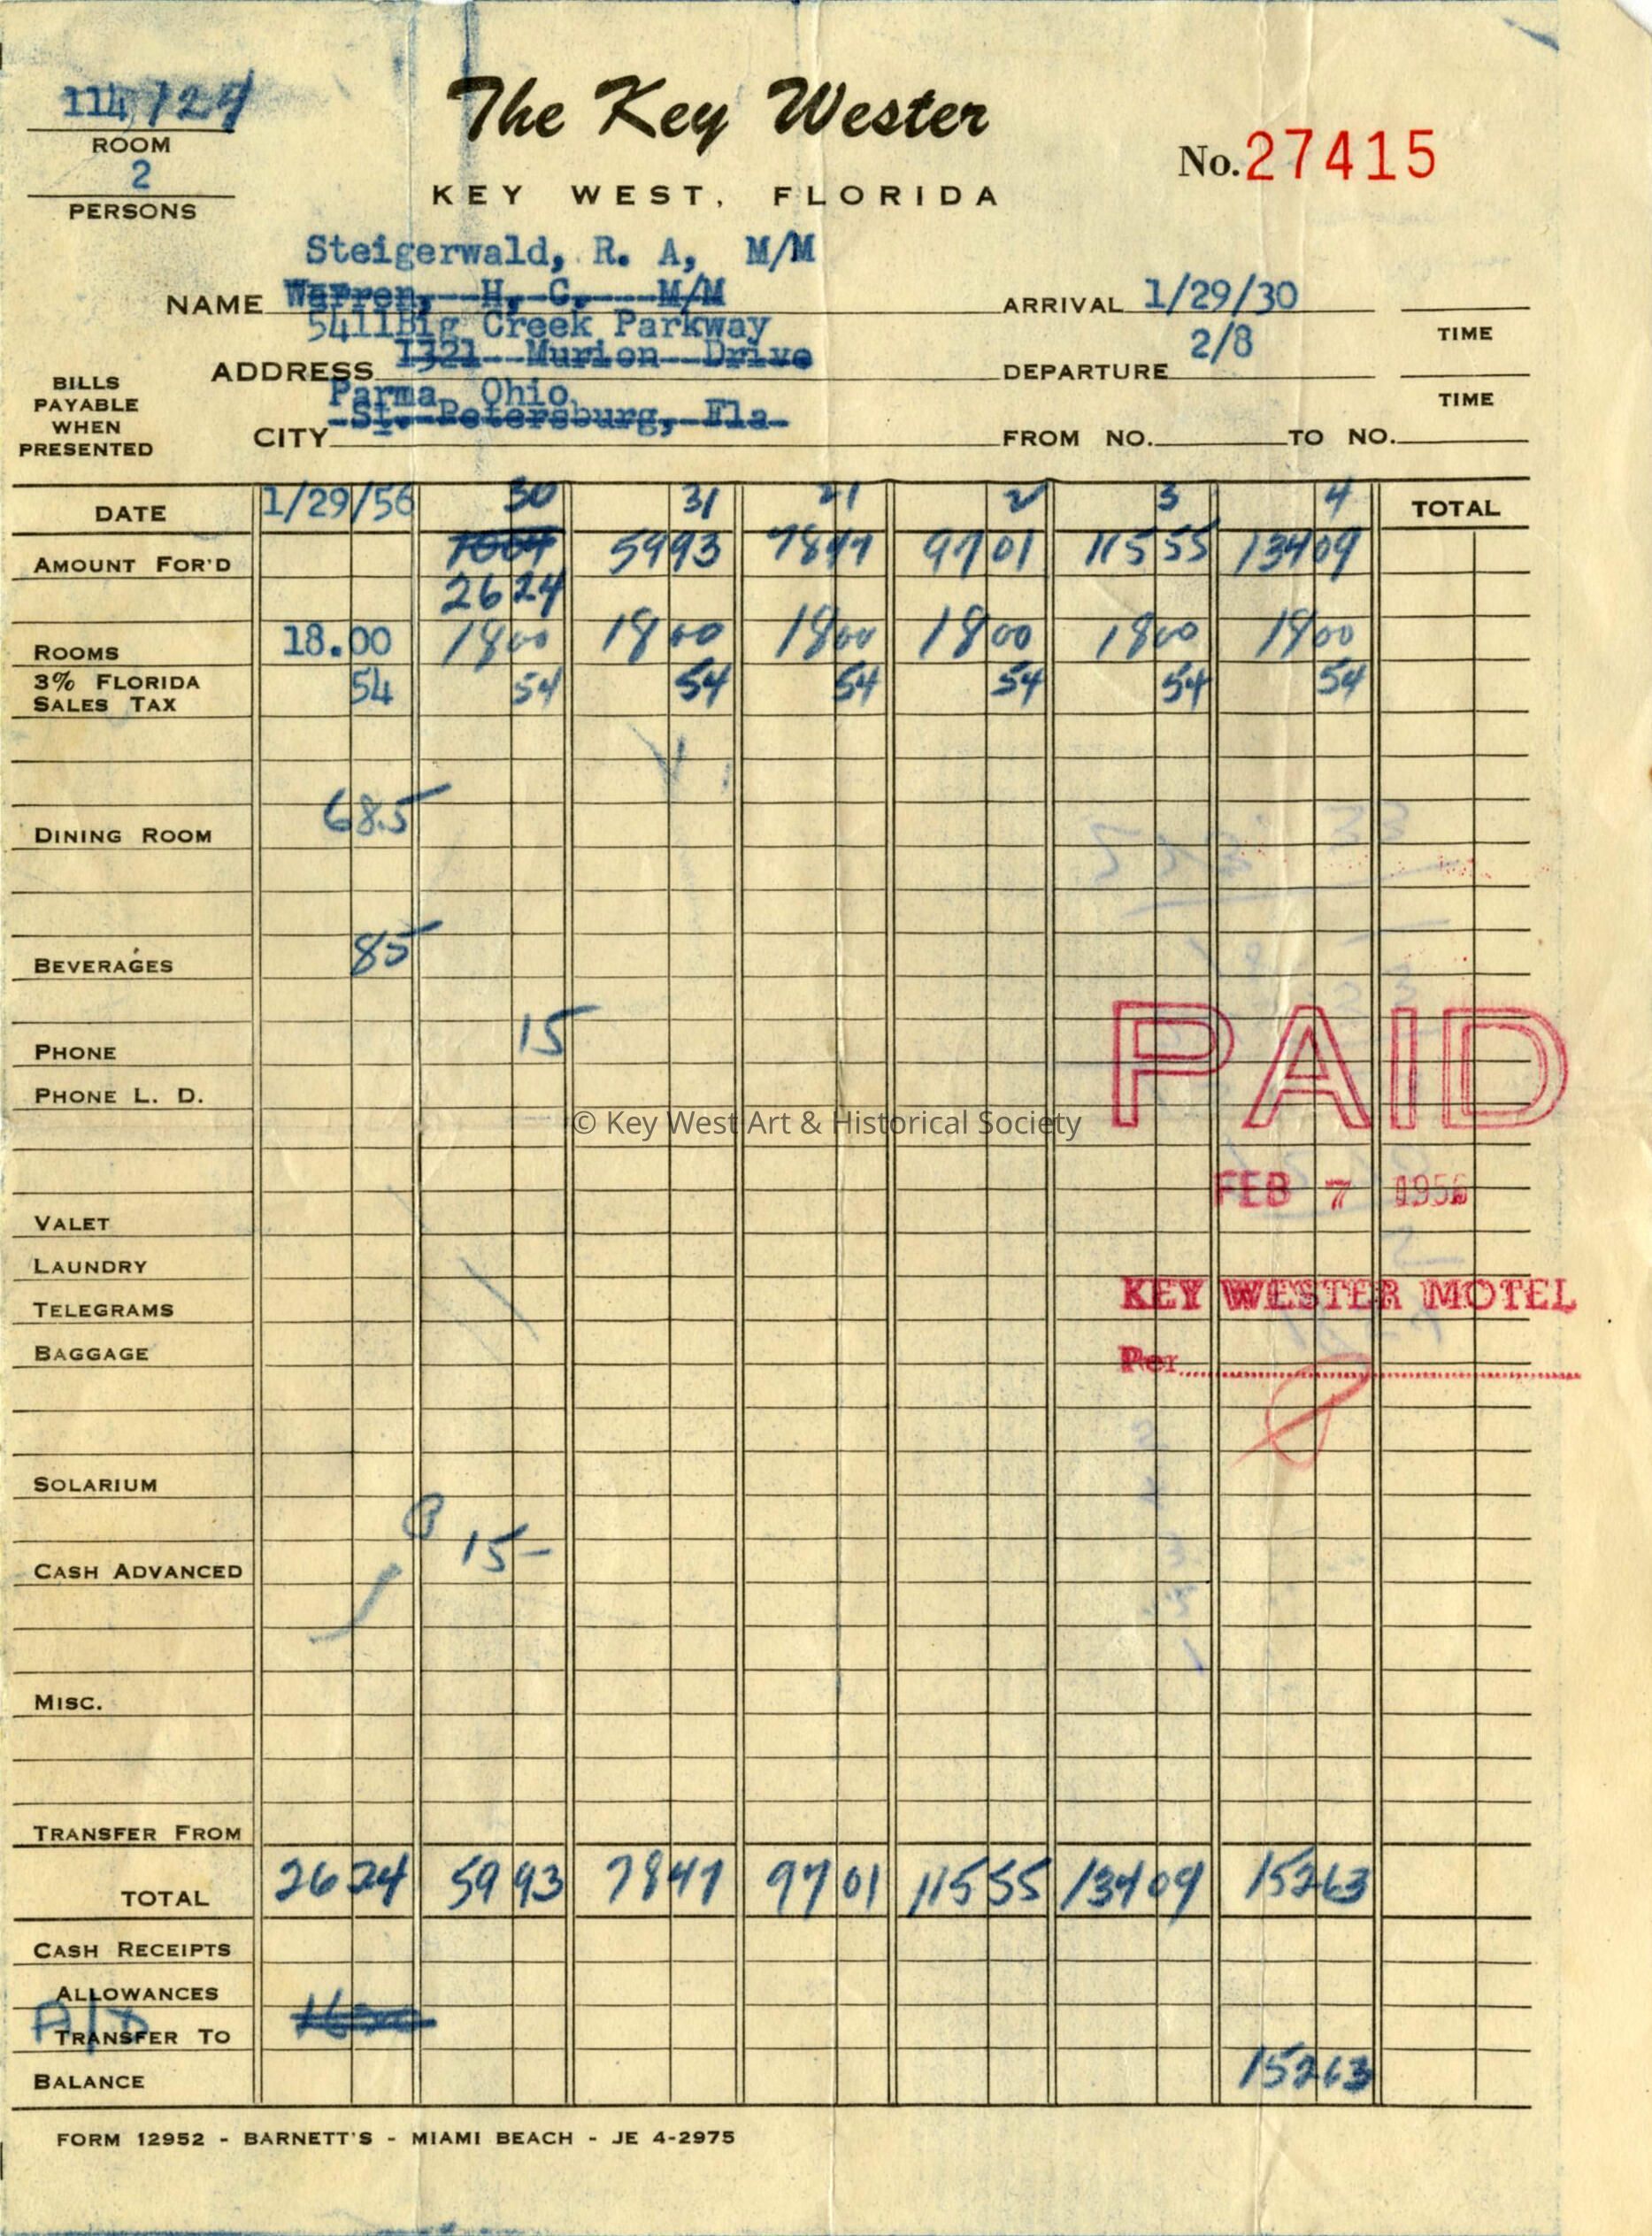 114/124
ROOM
2
PERSONS
The Key Wester
KEY WEST, FLORIDA
No. 27415
Steigerwald, R. A, M/M
NAME Warren, H, C, M/M
ARRIVAL 1/29/30
TIME
5411Big Creek Parkway
ADDRESS 1321 Murion Drive
DEPARTURE 2/8
TIME
BILLS PAYABLE WHEN PRESENTED
Parma, Ohio
CITY St. Petersburg, Fla
FROM NO. TO NO.
DATE 1/29/56 30 31 2/1 2 3 4 TOTAL
AMOUNT FOR'D 5993 7847 9701 11555 13409
2624
ROOMS 18.00 1800 1800 1800 1800 1800 1800
3% FLORIDA SALES TAX 54 54 54 54 54 54 54
DINING ROOM 685
BEVERAGES 85
PHONE 15
PHONE L. D.
© Key West Art & Historical Society
PAID
FEB 7 1956
VALET
LAUNDRY
KEY WESTER MOTEL
TELEGRAMS
BAGGAGE
Per
SOLARIUM
CASH ADVANCED 15-
MISC.
TRANSFER FROM
TOTAL 2624 5993 7847 9701 11555 13409 15263
CASH RECEIPTS
ALLOWANCES
TRANSFER TO
BALANCE 15263
FORM 12952 - BARNETT'S - MIAMI BEACH - JE 4-2975